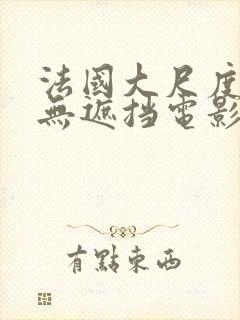 法國大尺度
無遮挡電影
有點東西